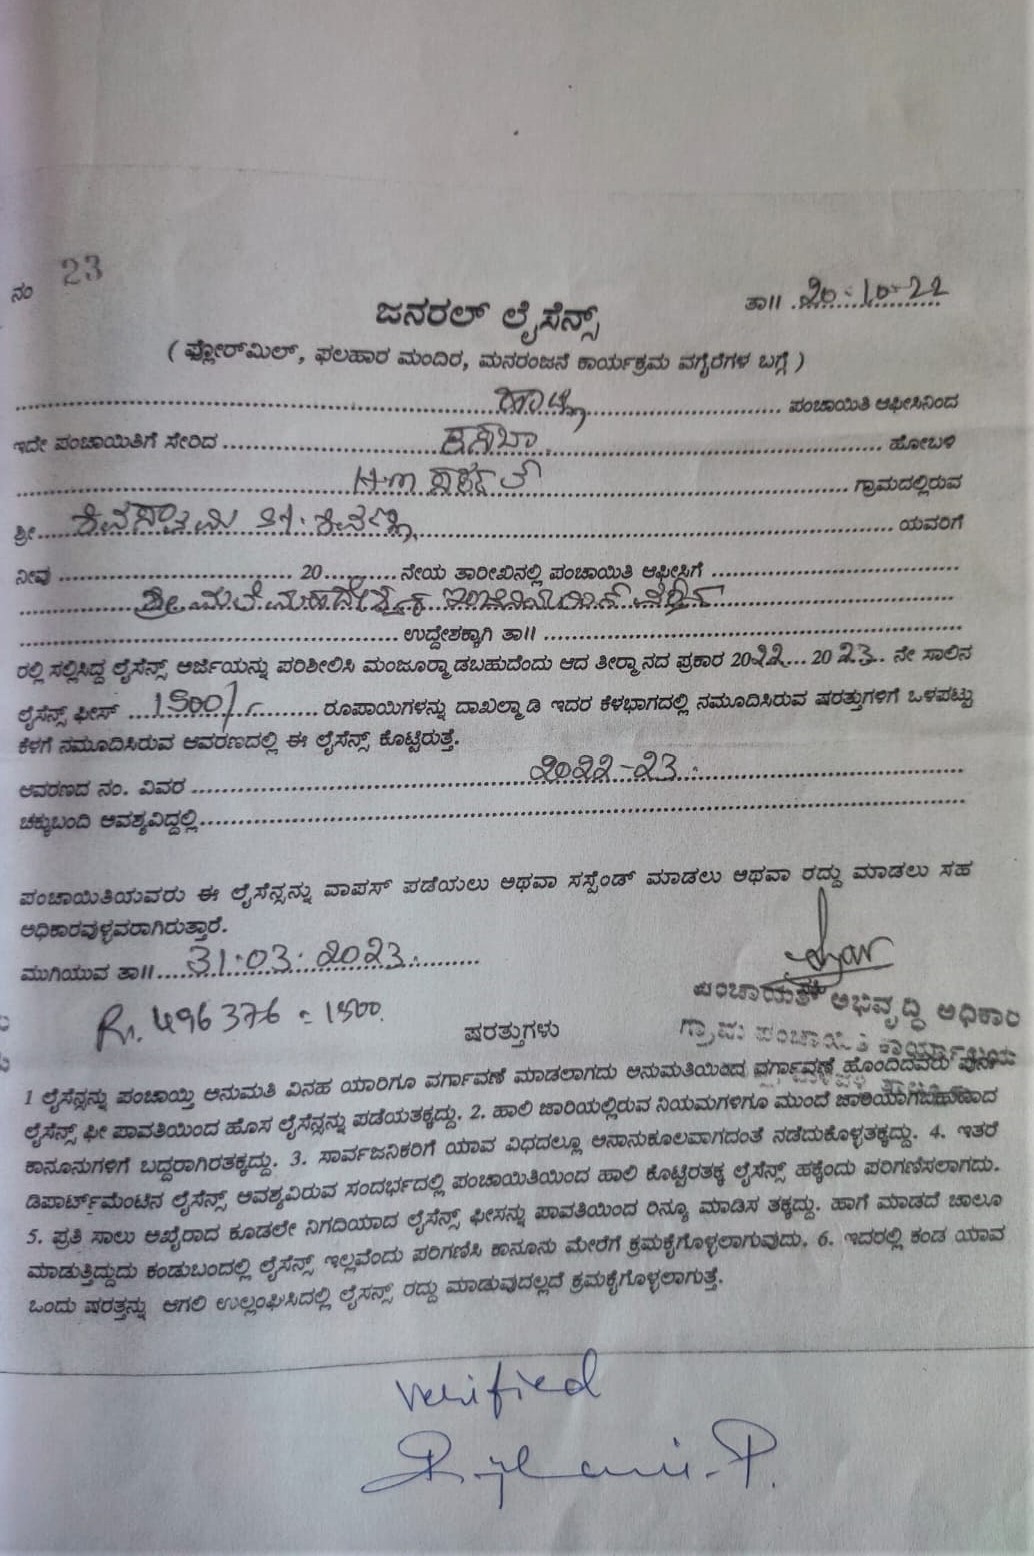 ನಂ 23
ತಾ॥ 20-10-22
ಜನರಲ್ ಲೈಸೆನ್ಸ್
( ಫ್ಲೋರ್‌ಮಿಲ್, ಫಲಹಾರ ಮಂದಿರ, ಮನರಂಜನೆ ಕಾರ್ಯಕ್ರಮ ವಗೈರೆಗಳ ಬಗ್ಗೆ )
ಪಂಚಾಯಿತಿ ಆಫೀಸಿನಿಂದ
ಇದೇ ಪಂಚಾಯಿತಿಗೆ ಸೇರಿದ ಕಸಬಾ ಹೋಬಳಿ
ಗ್ರಾಮದಲ್ಲಿರುವ
ಶ್ರೀ ಶಿವಸ್ವಾಮಿ S/o. ಶಿವಣ್ಣ ಯವರಿಗೆ
ನೀವು 20 ನೇಯ ತಾರೀಖಿನಲ್ಲಿ ಪಂಚಾಯಿತಿ ಆಫೀಸಿಗೆ
ಶ್ರೀ ಮಲೆ ಮಹದೇಶ್ವರ ಇಂಜಿನಿಯರಿಂಗ್ ವರ್ಕ್ಸ್
ಉದ್ದೇಶಕ್ಕಾಗಿ ತಾ॥
ರಲ್ಲಿ ಸಲ್ಲಿಸಿದ್ದ ಲೈಸೆನ್ಸ್ ಅರ್ಜಿಯನ್ನು ಪರಿಶೀಲಿಸಿ ಮಂಜೂರ್‍ಮಾಡಬಹುದೆಂದು ಆದ ತೀರ್‍ಮಾನದ ಪ್ರಕಾರ 2022... 2023.. ನೇ ಸಾಲಿನ
ಲೈಸೆನ್ಸ್ ಫೀಸ್ 1500/- ರೂಪಾಯಿಗಳನ್ನು ದಾಖಲ್ಮಾಡಿ ಇದರ ಕೆಳಭಾಗದಲ್ಲಿ ನಮೂದಿಸಿರುವ ಷರತ್ತುಗಳಿಗೆ ಒಳಪಟ್ಟು
ಕೆಳಗೆ ನಮೂದಿಸಿರುವ ಆವರಣದಲ್ಲಿ ಈ ಲೈಸೆನ್ಸ್ ಕೊಟ್ಟಿರುತ್ತೆ.
ಆವರಣದ ನಂ. ವಿವರ 2022-23
ಚಕ್ಕುಬಂದಿ ಅವಶ್ಯವಿದ್ದಲ್ಲಿ
ಪಂಚಾಯಿತಿಯವರು ಈ ಲೈಸೆನ್ಸನ್ನು ವಾಪಸ್ ಪಡೆಯಲು ಅಥವಾ ಸಸ್ಪೆಂಡ್ ಮಾಡಲು ಅಥವಾ ರದ್ದು ಮಾಡಲು ಸಹ
ಅಧಿಕಾರವುಳ್ಳವರಾಗಿರುತ್ತಾರೆ.
ಮುಗಿಯುವ ತಾ॥ 31.03.2023
ಪಂಚಾಯತ್ ಅಭಿವೃದ್ಧಿ ಅಧಿಕಾರಿ
R. 496376 = 1500
ಷರತ್ತುಗಳು
ಗ್ರಾಮ ಪಂಚಾಯಿತಿ ಕಾರ್ಯಾಲಯ
1 ಲೈಸೆನ್ಸನ್ನು ಪಂಚಾಯ್ತಿ ಅನುಮತಿ ವಿನಹ ಯಾರಿಗೂ ವರ್ಗಾವಣೆ ಮಾಡಲಾಗದು ಅನುಮತಿಯಿಂದ ವರ್ಗಾವಣೆ ಹೊಂದಿದವರು ಪುನಃ
ಲೈಸೆನ್ಸ್ ಫೀ ಪಾವತಿಯಿಂದ ಹೊಸ ಲೈಸೆನ್ಸನ್ನು ಪಡೆಯತಕ್ಕದ್ದು. 2. ಹಾಲಿ ಜಾರಿಯಲ್ಲಿರುವ ನಿಯಮಗಳಿಗೂ ಮುಂದೆ ಜಾರಿಯಾಗಬಹುದಾದ
ಕಾನೂನುಗಳಿಗೆ ಬದ್ದರಾಗಿರತಕ್ಕದ್ದು. 3. ಸಾರ್ವಜನಿಕರಿಗೆ ಯಾವ ವಿಧದಲ್ಲೂ ಅನಾನುಕೂಲವಾಗದಂತೆ ನಡೆದುಕೊಳ್ಳತಕ್ಕದ್ದು. 4. ಇತರೆ
ಡಿಪಾರ್ಟ್‌ಮೆಂಟಿನ ಲೈಸೆನ್ಸ್ ಅವಶ್ಯವಿರುವ ಸಂದರ್ಭದಲ್ಲಿ ಪಂಚಾಯಿತಿಯಿಂದ ಹಾಲಿ ಕೊಟ್ಟಿರತಕ್ಕ ಲೈಸೆನ್ಸ್ ಹಕ್ಕೆಂದು ಪರಿಗಣಿಸಲಾಗದು.
5. ಪ್ರತಿ ಸಾಲು ಆಖೈರಾದ ಕೂಡಲೇ ನಿಗದಿಯಾದ ಲೈಸೆನ್ಸ್ ಫೀಸನ್ನು ಪಾವತಿಯಿಂದ ರಿನ್ಯೂ ಮಾಡಿಸ ತಕ್ಕದ್ದು. ಹಾಗೆ ಮಾಡದೆ ಚಾಲೂ
ಮಾಡುತ್ತಿದ್ದುದು ಕಂಡುಬಂದಲ್ಲಿ ಲೈಸೆನ್ಸ್ ಇಲ್ಲವೆಂದು ಪರಿಗಣಿಸಿ ಕಾನೂನು ಮೇರೆಗೆ ಕ್ರಮಕೈಗೊಳ್ಳಲಾಗುವುದು. 6. ಇದರಲ್ಲಿ ಕಂಡ ಯಾವ
ಒಂದು ಷರತ್ತನ್ನು ಆಗಲಿ ಉಲ್ಲಂಘಿಸಿದಲ್ಲಿ ಲೈಸನ್ಸ್ ರದ್ದು ಮಾಡುವುದಲ್ಲದೆ ಕ್ರಮಕೈಗೊಳ್ಳಲಾಗುತ್ತೆ.
verified